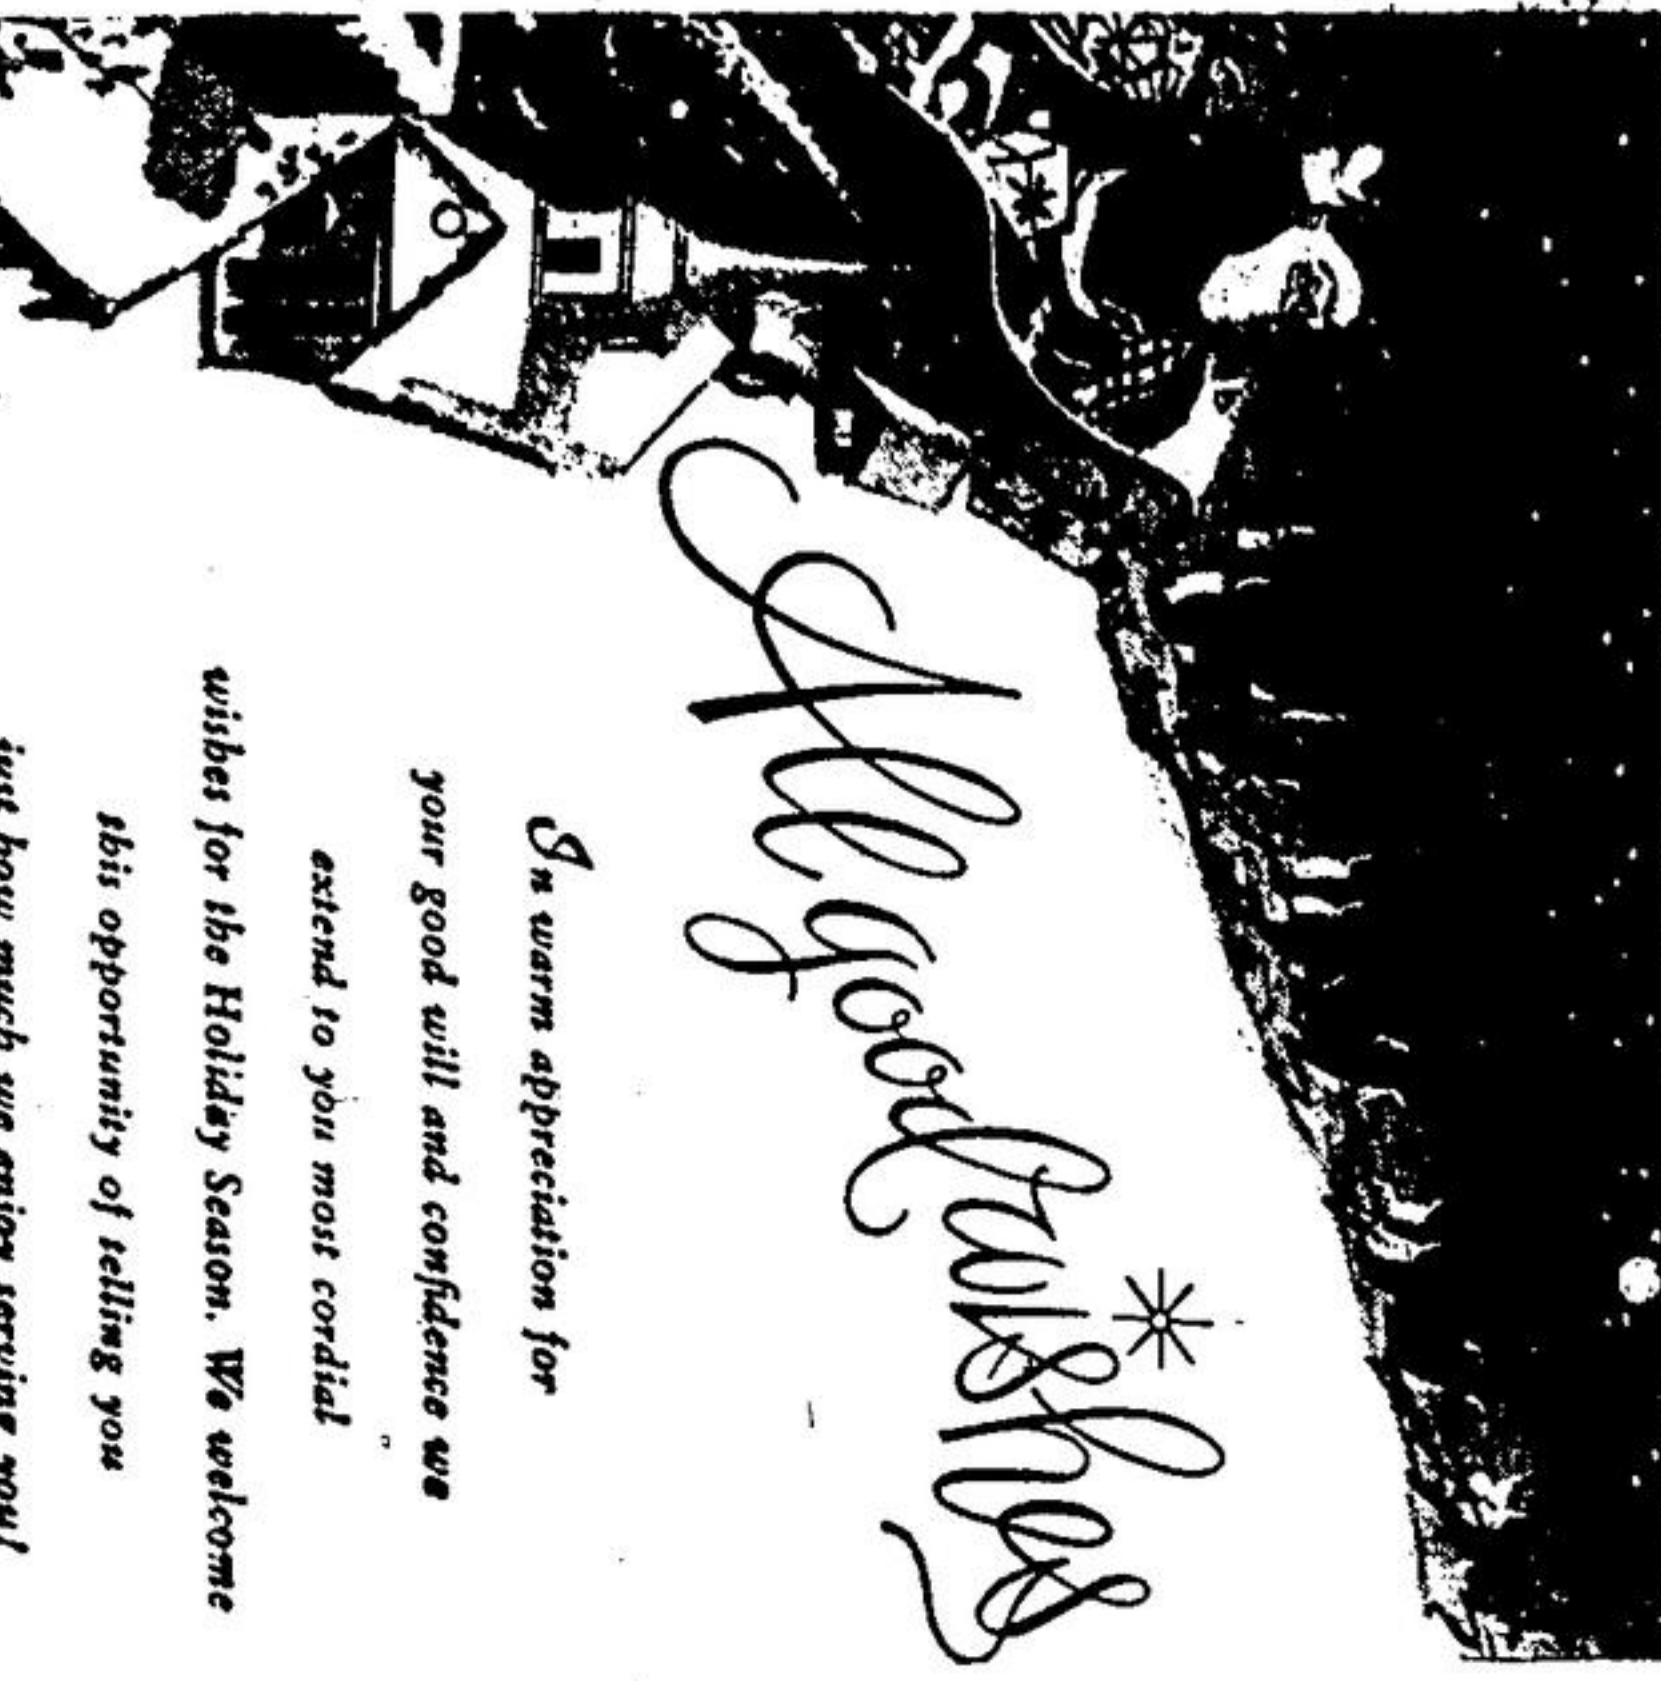 All good wishes
In warm appreciation for
your good will and confidence we
extend to you most cordial
wishes for the Holiday Season. We welcome
this opportunity of telling you
just how much we enjoy serving you!